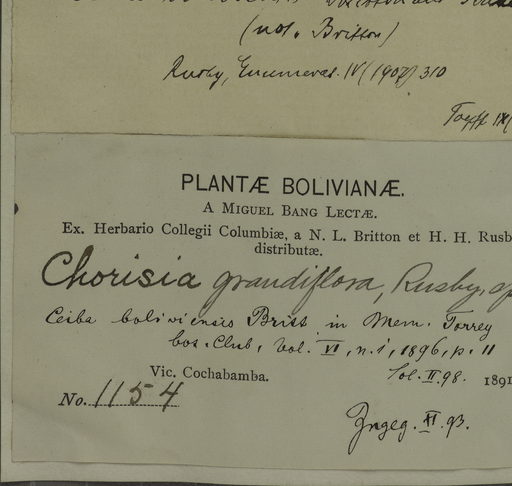 (not. Britton)
Rusby, Enumerat. IV (1907) 310
PLANTÆ BOLIVIANÆ.
A MIGUEL BANG LECTÆ.
Ex. Herbario Collegii Columbiæ, a N. L. Britton et H. H. Rusb
distributæ.
Chorisia grandiflora, Rusby, sp
Ceiba boliviensis Britt. in Mem. Torrey
bot. Club, Vol. VI, n. 1, 1896, p. 11
Vic. Cochabamba.
Sol. II. 98. 1891
No. 1154
Ingeg. XI. 93.